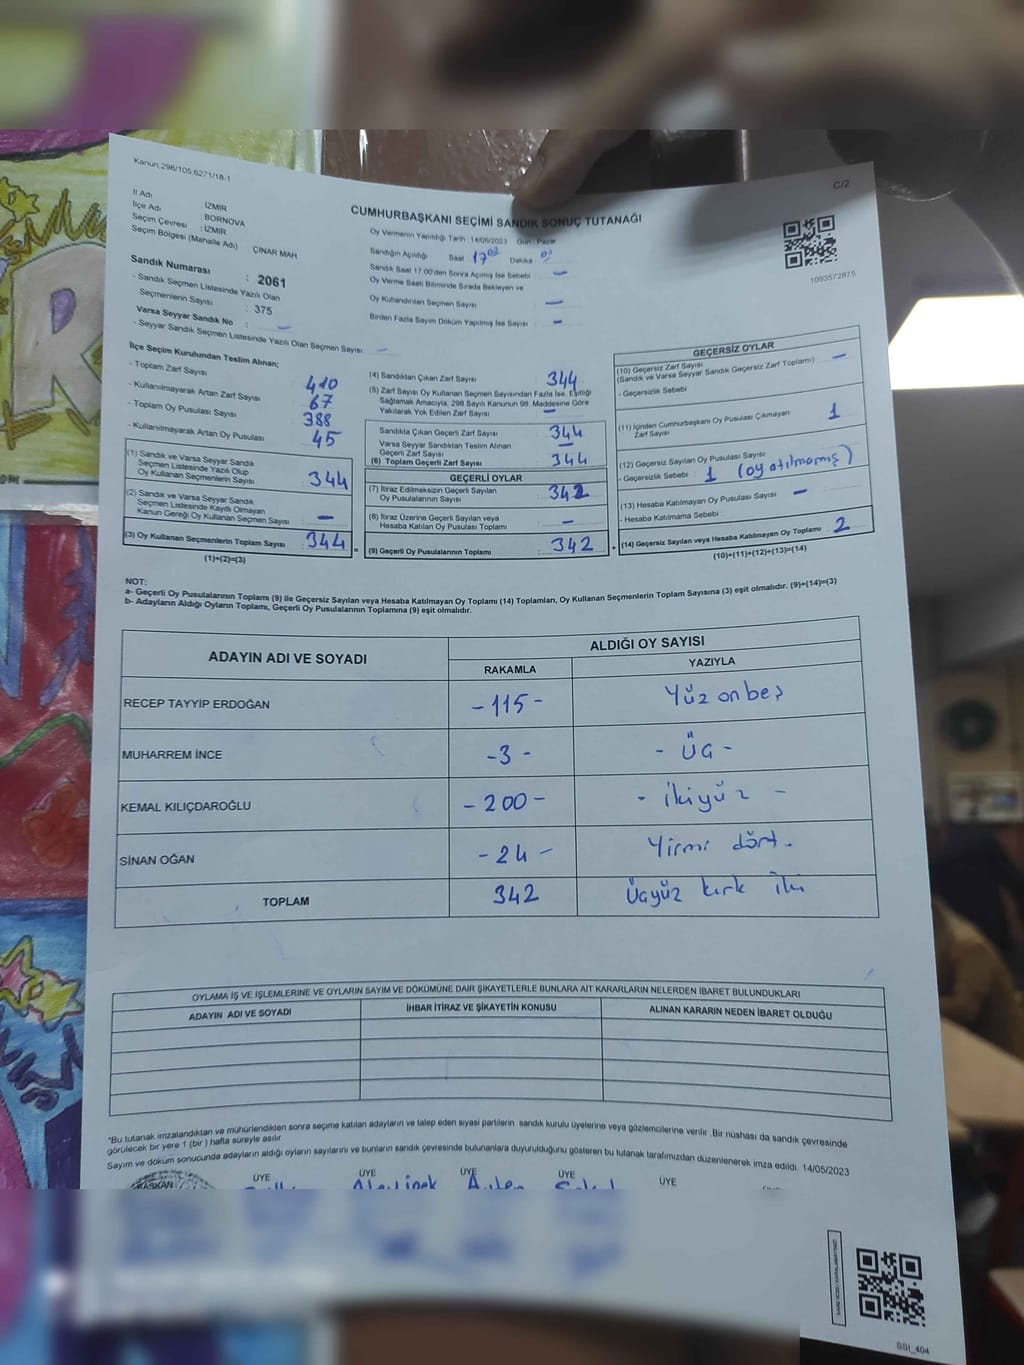 Kanun;298/105;6271/18-1
C/2
İl Adı
İZMİR
İlçe Adı
BORNOVA
Seçim Çevresi : İZMİR
Seçim Bölgesi (Mahalle Adı) ÇINAR MAH
Sandık Numarası : 2061
- Sandık Seçmen Listesinde Yazılı Olan
Seçmenlerin Sayısı : 375
Varsa Seyyar Sandık No : -
- Seyyar Sandık Seçmen Listesinde Yazılı Olan Seçmen Sayısı -
CUMHURBAŞKANI SEÇİMİ SANDIK SONUÇ TUTANAĞI
Oy Vermenin Yapıldığı Tarih : 14/05/2023 Gün : Pazar
Sandığın Açıldığı Saat 17 02 Dakika
Sandık Saat 17:00'den Sonra Açılmış İse Sebebi -
Oy Verme Saati Bitiminde Sırada Bekleyen ve
Oy Kullandırılan Seçmen Sayısı -
Birden Fazla Sayım Döküm Yapılmış İse Sayısı -
1093572875
İlçe Seçim Kurulundan Teslim Alınan;
- Toplam Zarf Sayısı 410
- Kullanılmayarak Artan Zarf Sayısı 67
- Toplam Oy Pusulası Sayısı 388
- Kullanılmayarak Artan Oy Pusulası 45
(1) Sandık ve Varsa Seyyar Sandık
Seçmen Listesinde Yazılı Olup
Oy Kullanan Seçmenlerin Sayısı : 344
(2) Sandık ve Varsa Seyyar Sandık
Seçmen Listesinde Kayıtlı Olmayan
Kanun Gereği Oy Kullanan Seçmen Sayısı : -
(3) Oy Kullanan Seçmenlerin Toplam Sayısı : 344
(1)+(2)=(3)
(4) Sandıktan Çıkan Zarf Sayısı 344
(5) Zarf Sayısı Oy Kullanan Seçmen Sayısından Fazla İse, Eşitliği
Sağlamak Amacıyla, 298 Sayılı Kanunun 98. Maddesine Göre
Yakılarak Yok Edilen Zarf Sayısı -
Sandıkta Çıkan Geçerli Zarf Sayısı : 344
Varsa Seyyar Sandıktan Teslim Alınan
Geçerli Zarf Sayısı -
(6) Toplam Geçerli Zarf Sayısı 344
GEÇERLİ OYLAR
(7) İtiraz Edilmeksizin Geçerli Sayılan
Oy Pusulalarının Sayısı : 342
(8) İtiraz Üzerine Geçerli Sayılan veya
Hesaba Katılan Oy Pusulası Toplamı : -
= (9) Geçerli Oy Pusulalarının Toplamı : 342
GEÇERSİZ OYLAR
(10) Geçersiz Zarf Sayısı -
(Sandık ve Varsa Seyyar Sandık Geçersiz Zarf Toplamı)
- Geçersizlik Sebebi
(11) İçinden Cumhurbaşkanı Oy Pusulası Çıkmayan
Zarf Sayısı 1
(12) Geçersiz Sayılan Oy Pusulası Sayısı
- Geçersizlik Sebebi : 1 (oy atılmamış)
(13) Hesaba Katılmayan Oy Pusulası Sayısı -
- Hesaba Katılmama Sebebi :
+ (14) Geçersiz Sayılan veya Hesaba Katılmayan Oy Toplamı : 2
(10)+(11)+(12)+(13)=(14)
NOT:
a- Geçerli Oy Pusulalarının Toplamı (9) ile Geçersiz Sayılan veya Hesaba Katılmayan Oy Toplamı (14) Toplamları, Oy Kullanan Seçmenlerin Toplam Sayısına (3) eşit olmalıdır. (9)+(14)=(3)
b- Adayların Aldığı Oyların Toplamı, Geçerli Oy Pusulalarının Toplamına (9) eşit olmalıdır.
ADAYIN ADI VE SOYADI
ALDIĞI OY SAYISI
RAKAMLA YAZIYLA
RECEP TAYYİP ERDOĞAN -115- Yüz onbeş
MUHARREM İNCE -3- -üç-
KEMAL KILIÇDAROĞLU -200- - ikiyüz -
SİNAN OĞAN -24- Yirmi dört.
TOPLAM 342 üçyüz kırk iki
OYLAMA İŞ VE İŞLEMLERİNE VE OYLARIN SAYIM VE DÖKÜMÜNE DAİR ŞİKAYETLERLE BUNLARA AİT KARARLARIN NELERDEN İBARET BULUNDUKLARI
ADAYIN ADI VE SOYADI İHBAR İTİRAZ VE ŞİKAYETİN KONUSU ALINAN KARARIN NEDEN İBARET OLDUĞU
*Bu tutanak imzalandıktan ve mühürlendikten sonra seçime katılan adayların ve talep eden siyasi partilerin sandık kurulu üyelerine veya gözlemcilerine verilir. Bir nüshası da sandık çevresinde
görülecek bir yere 1 (bir) hafta süreyle asılır
Sayım ve döküm sonucunda adayların aldığı oyların sayılarını ve bunların sandık çevresinde bulunanlara duyurulduğunu gösteren bu tutanak tarafımızdan düzenlenerek imza edildi. 14/05/2023
BAŞKAN ÜYE ÜYE ÜYE ÜYE ÜYE
SSI_404